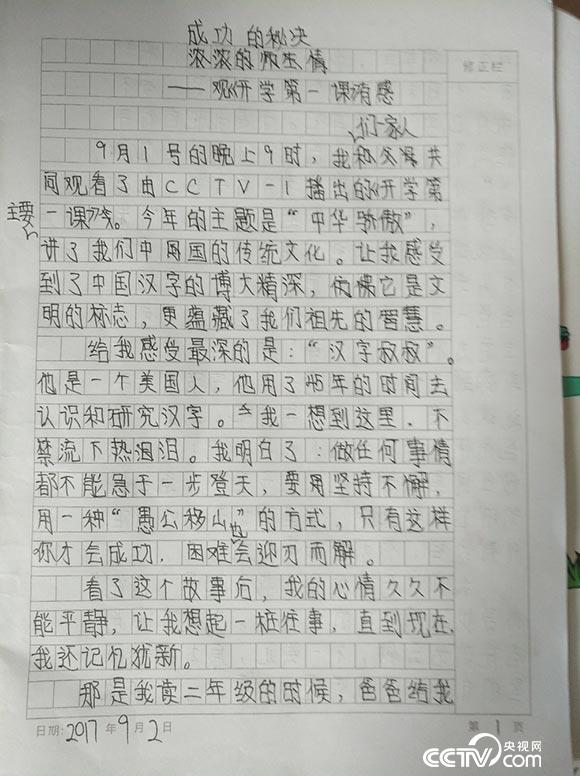 成功的秘决
浓浓的师生情
修正栏
——观《开学第一课》有感
们一家人
9月1号的晚上9时，我和父母共
同观看了由CCTV-1播出的《开学第
主要
一课》。今年的主题是“中华骄傲”，
讲了我们中国的传统文化。让我感受
到了中国汉字的博大精深，仿佛它是文
明的标志，更蕴藏了我们祖先的智慧。
给我感受最深的是：“汉字叔叔”。
他是一个美国人，他用了45年的时间去
认识和研究汉字。我一想到这里，不
禁流下热泪。我明白了：做任何事情
都不能急于一步登天，要用坚持不懈，
用一种“愚公移山”的方式，只有这样
你才会成功，困难也会迎刃而解。
看了这个故事后，我的心情久久不
能平静，让我想起一桩往事，直到现在，
我还记忆犹新。
那是我读二年级的时候，爸爸给我
日期：2017年9月2日 第1页
CCTV.com 央视网